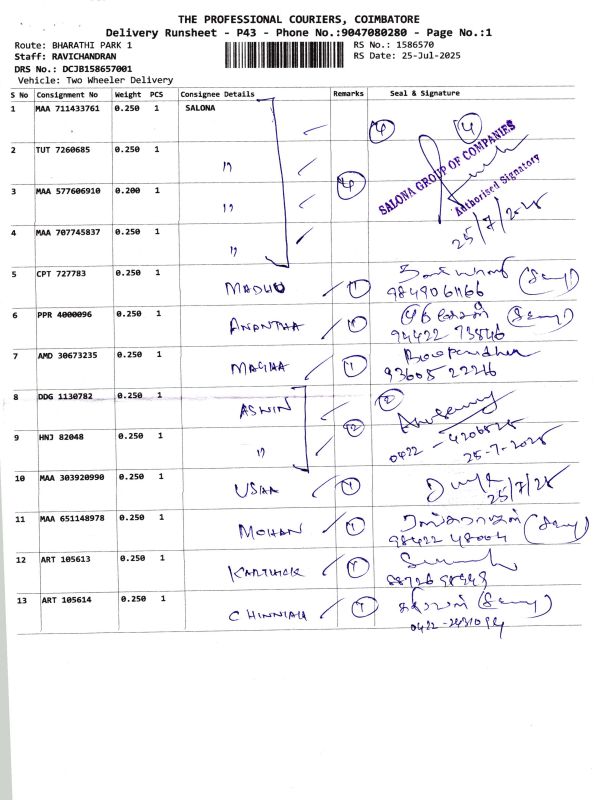 THE PROFESSIONAL COURIERS, COIMBATORE
Delivery Runsheet - P43 - Phone No.:9047080280 - Page No.:1
Route: BHARATHI PARK 1 RS No.: 1586570
Staff: RAVICHANDRAN RS Date: 25-Jul-2025
DRS No.: DCJB158657001
Vehicle: Two Wheeler Delivery
S No Consignment No Weight PCS Consignee Details Remarks Seal & Signature
1 MAA 711433761 0.250 1 SALONA 4 4
SALONA GROUP OF COMPANIES
Authorised Signatory
25/7/2025
2 TUT 7260685 0.250 1 "
3 MAA 577606910 0.200 1 " 4
4 MAA 707745837 0.250 1 "
5 CPT 727783 0.250 1 MADHU 1
9849061166
6 PPR 4000096 0.250 1 ANANTHA 1
94422 73846
7 AMD 30673235 0.250 1 MAGHA 1
93605 22216
8 DDG 1130782 0.250 1 ASWIN 2
0422 - 4206525
9 HNJ 82048 0.250 1 " 2
25-7-2025
10 MAA 303920990 0.250 1 USAA 1
25/7/25
11 MAA 651148978 0.250 1 MOHAN 1
98422 48004
12 ART 105613 0.250 1 KARTHICK 1
13 ART 105614 0.250 1 CHINNIAH 1